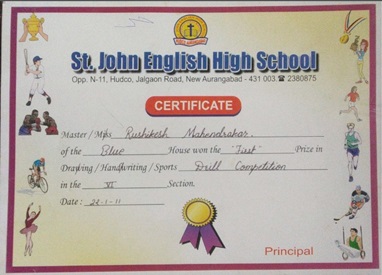 St. John English High School
Opp. N-11, Hudco, Jalgaon Road, New Aurangabad - 431 003. ☎ 2380875
CERTIFICATE
Master / Miss Rushikesh Mahendrakar.
of the Blue House won the "First" Prize in
Drawing / Handwriting / Sports Drill Competition
in the VI Section.
Date : 28-1-11
Principal